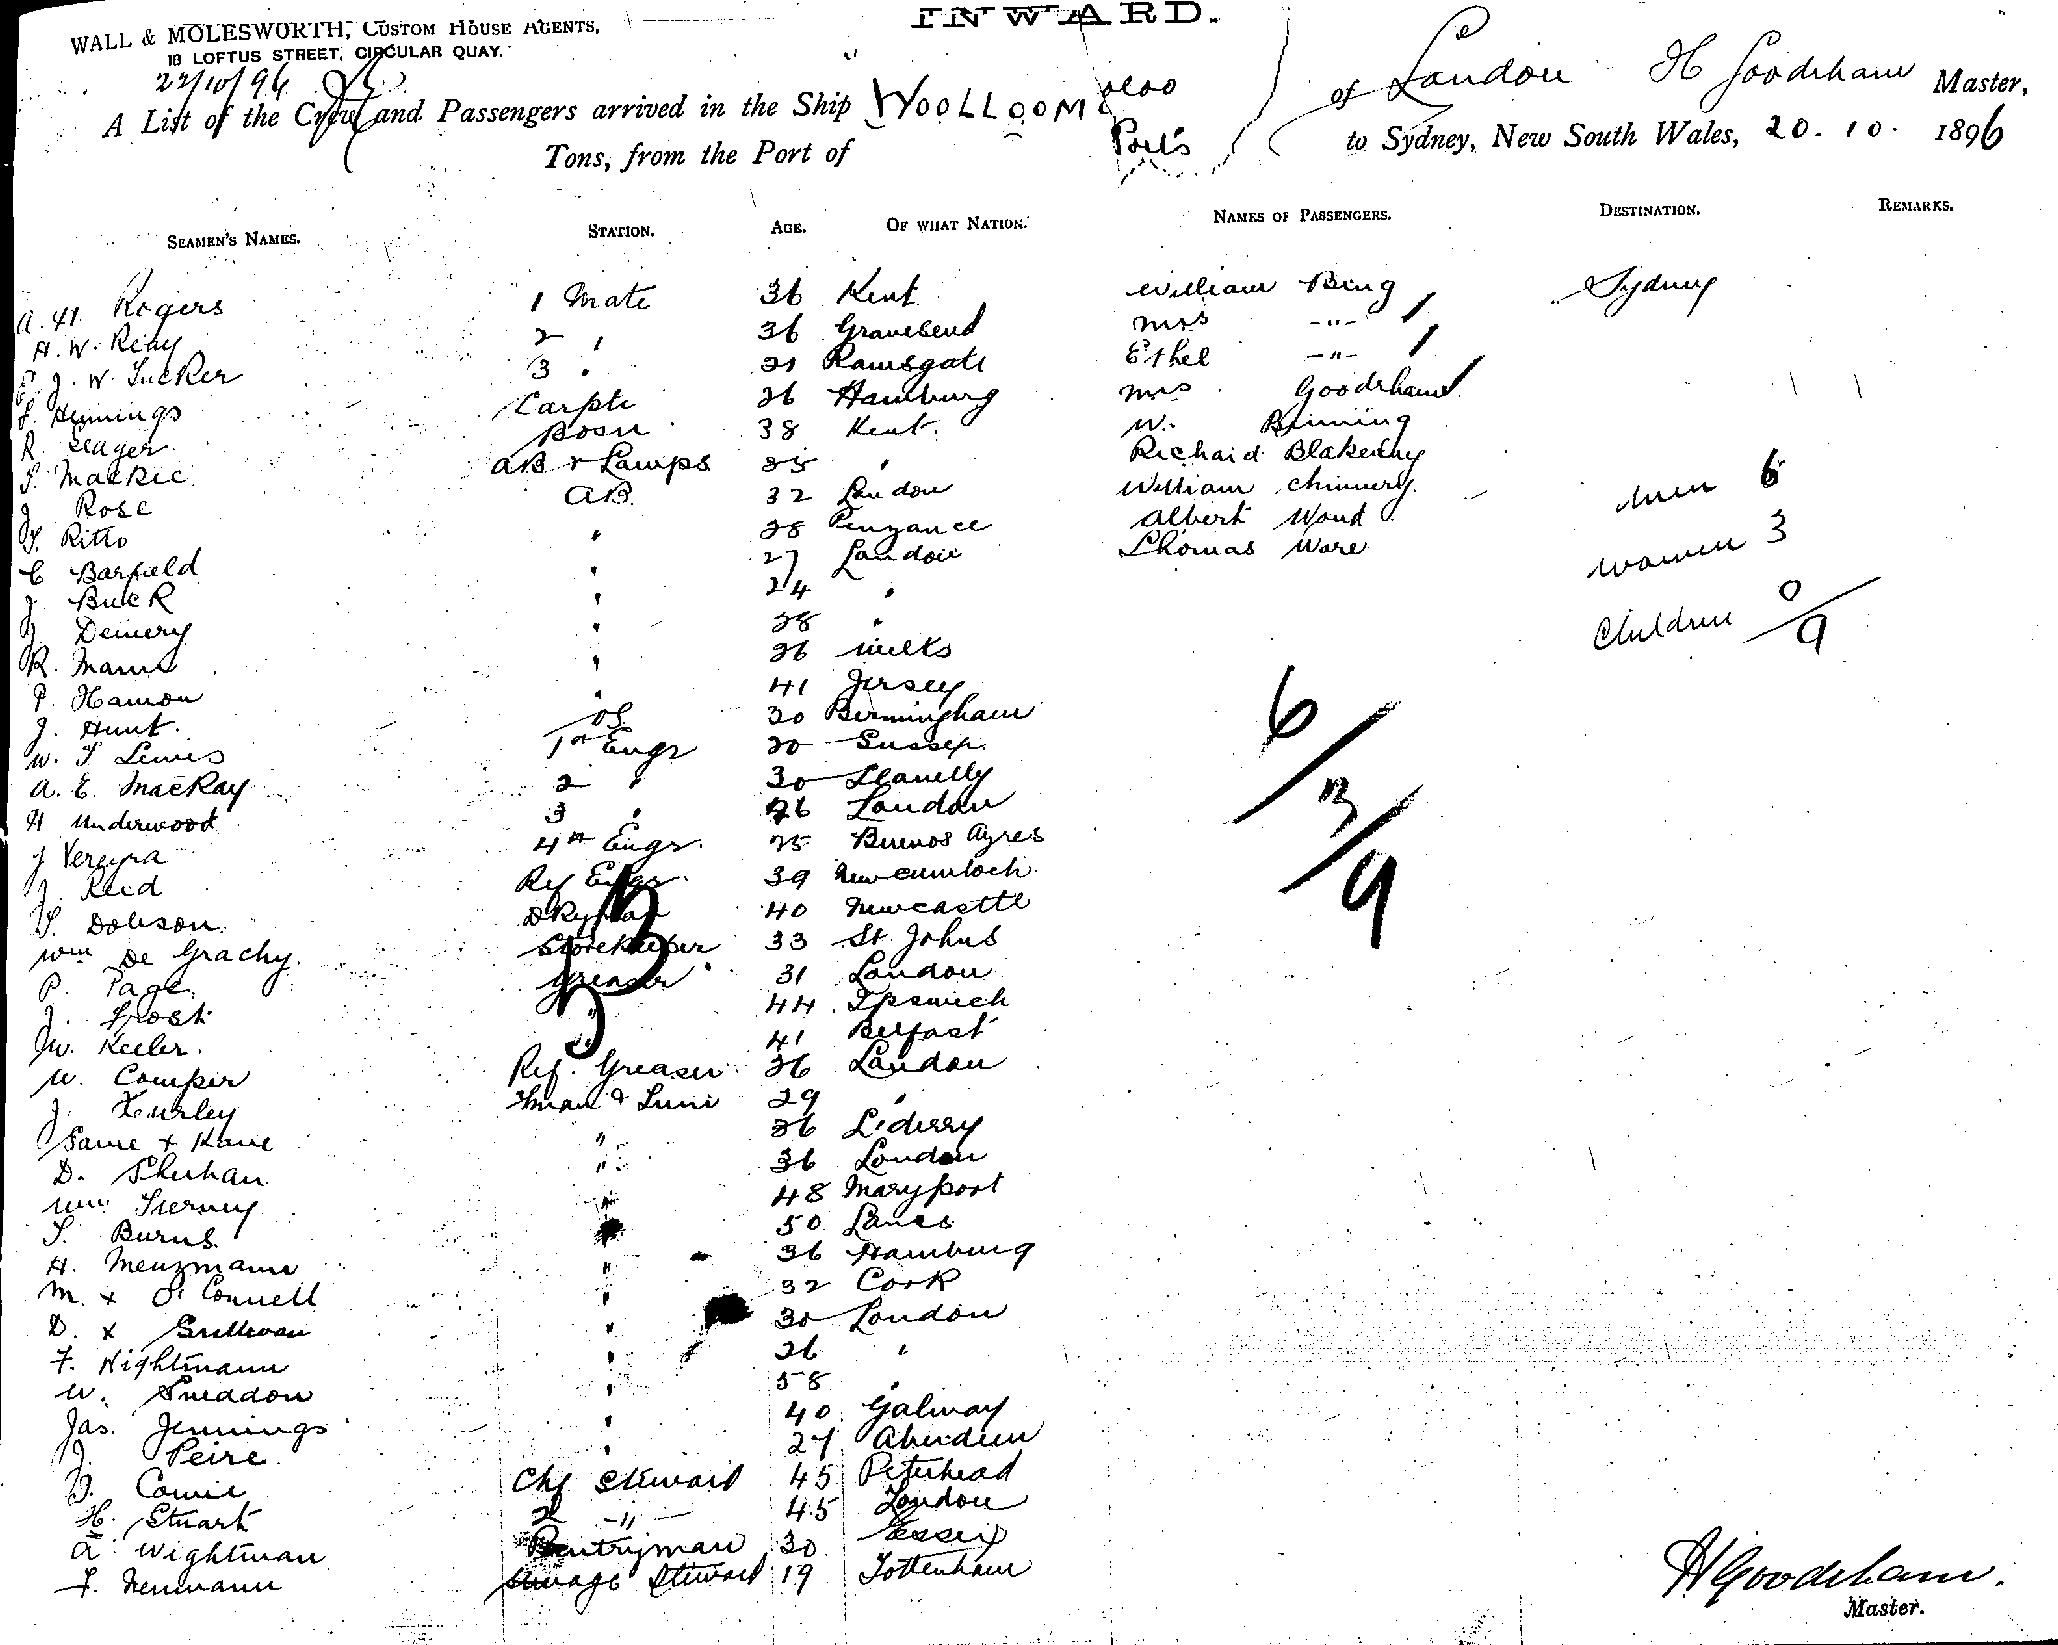 INWARD.
WALL & MOLESWORTH, CUSTOM HOUSE AGENTS,
18 LOFTUS STREET, CIRCULAR QUAY.
22/10/96
A List of the Crew and Passengers arrived in the Ship WOOLLOOMOLOO of London H Goodrham Master,
Tons, from the Port of to Sydney, New South Wales, 20. 10. 1896
SEAMEN'S NAMES. STATION. AGE. OF WHAT NATION. NAMES OF PASSENGERS. DESTINATION. REMARKS.
Rogers 1 Mate 36 Kent William Bing Sydney
H. W. Reay 2 " 36 Gravesend Mrs -"-
J. W. Tucker 3 " Ramsgate Ethel -"-
Hennings Carptr 26 Hamburg Mrs Goodrham
R. Seager Bosn 38 Kent W. Binning
Mackie AB & Lamps " Richard Blakeney
J Rose AB 32 London William Chinnery
Ritto " 28 Penzance Albert Wood
C Barfield " 27 London Thomas Ware
J. Buck " 24 "
Demery " 28 "
R. Mann " 26 Wilts
P. Hamon " 41 Jersey
J. Hunt OS 20 Birmingham
W. T Lewis 1st Engr Sussex
A. E. MacKay 2 " 30 Llanelly
H Underwood 3 " 26 London
J Vereyra 4th Engr 25 Buenos Ayres
J. Reid Ref Engr 39 New Cumnock
T. Dobson Dkyman 40 Newcastle
Wm De Grachy Storekeeper 33 St Johns
P. Page Greaser 31 London
J. Frost " 44 Ipswich
Jw. Keeler " 41 Belfast
W. Comper Ref. Greaser 26 London
J. Fman & Trim 29 "
Kane " 26 L'derry
D. Sheehan " 36 London
Wm Tierney " 48 Maryport
T. Burns " 50 Lancs
H. Menzmann " 36 Hamburg
M. x O'Connell " 32 Cork
D. x Sullivan " 30 London
F. Nightmann " 26 "
W. Sneddon " 58 "
Jas. Jennings " 40 Galway
J. Peire " 27 Aberdeen
Cowie Chf Steward 45 Peterhead
H. Stuart 2 -"- 45 London
A Wightman Pantryman 30 Essex
F. Neumann Steward 19 Tottenham
Men 6
Women 3
Children 0
9
6/3/9
HGoodrham.
Master.